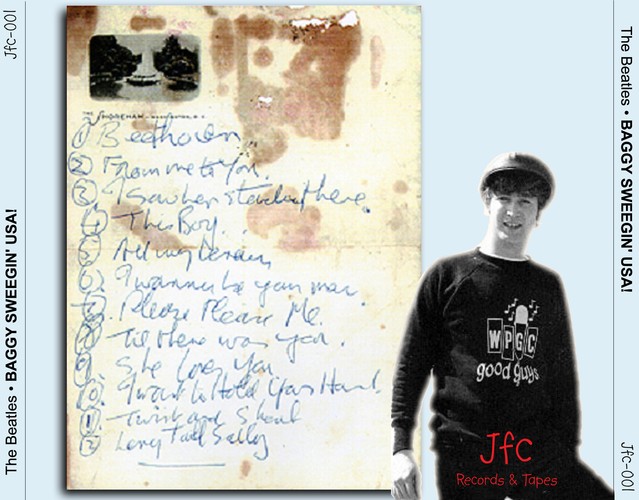 Jfc-001
The Beatles • BAGGY SWEEGIN' USA!
THE SHOREHAM - WASHINGTON, D. C.
1 Beethoven
2 From me to You.
3 I saw her standing there.
4 This Boy.
5 All my loving
6 I wanna be your man.
7 Please Please Me.
8 Till there was you.
9 She loves You
10 I want to Hold Your Hand.
11 Twist and Shout
12 Long Tall Sally
WPGC
good guys
Jfc
Records & Tapes
The Beatles • BAGGY SWEEGIN' USA!
Jfc-001